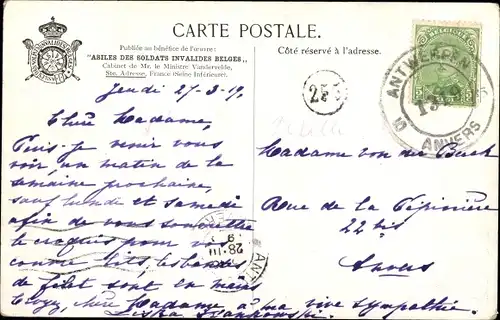 CARTE POSTALE.
Publiée au bénéfice de l'œuvre:
"ASILES DES SOLDATS INVALIDES BELGES,,
Cabinet de Mr. le Ministre Vandervelde,
Ste. Adresse, France (Seine Inférieure).
Côté réservé à l'adresse.
ANTWERPEN
1919
5 ANVERS
25
Jeudi 27-3-19.
Chère Madame,
Puis-je venir vous
voir, un matin de la
semaine prochaine,
sauf lundi et samedi
afin de vous soumettre
le croquis pour vos
contre les bandes
de filet sont en mains
Croyez, chère Madame à ma vive sympathie.
28 III
Madame von der
Rue de la Pépinière
22 bis
Anvers